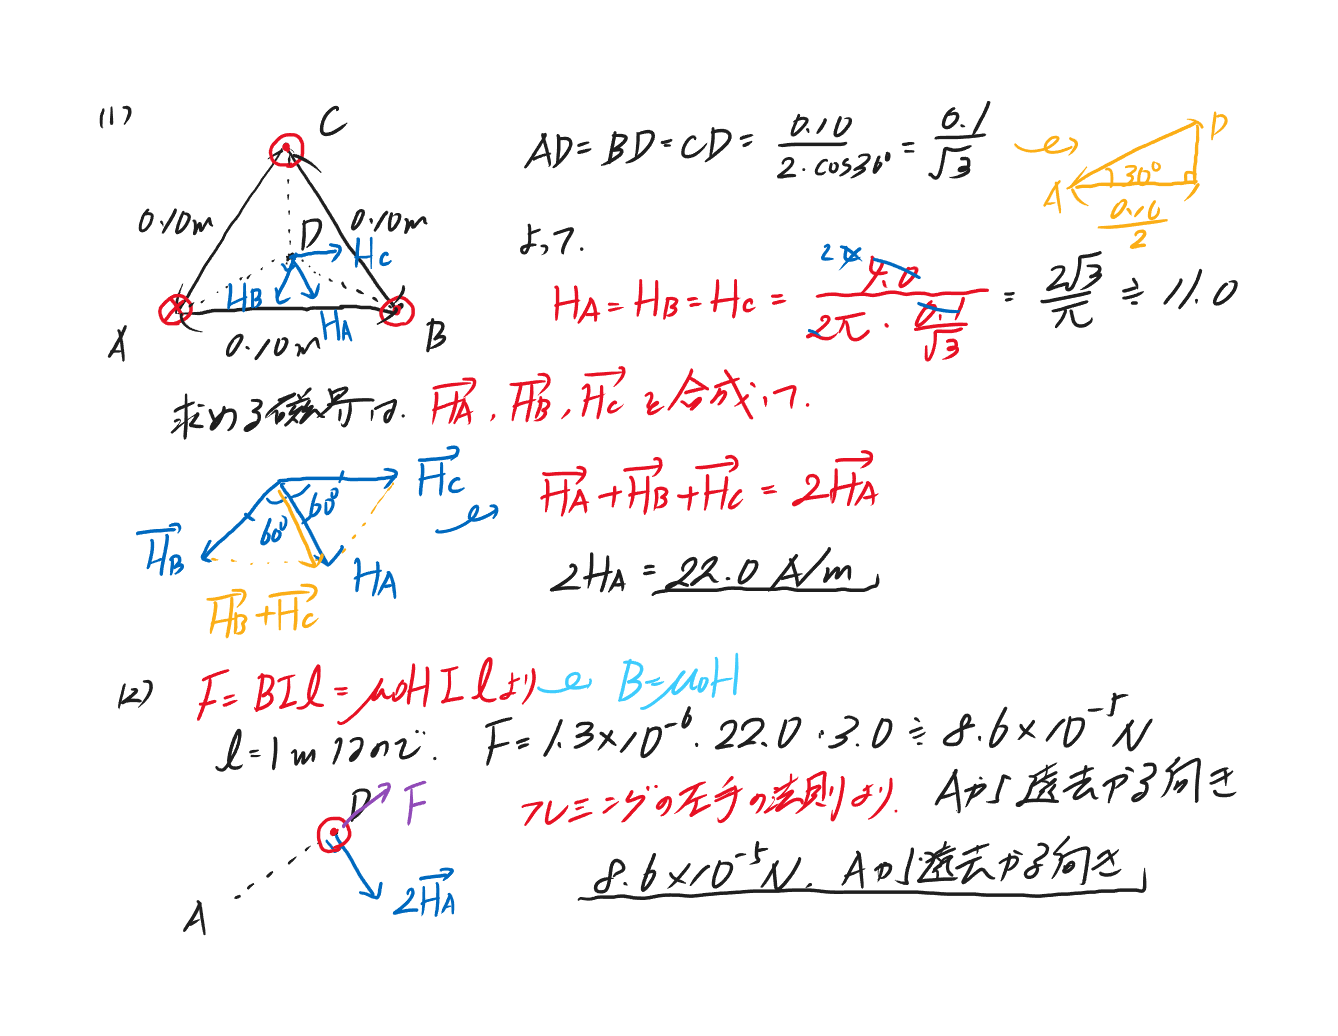 (1)
C
0.10m
0.10m
D
Hc
HB
HA
A
B
0.10m
AD = BD = CD = 0.10/(2・cos30°) = 0.1/√3
D
A
30°
0.10/2
よって、
HA = HB = Hc = 4.0/(2π・0.1/√3) = 2√3/π ≒ 11.0
2
求める磁界は、HA→, HB→, Hc→を合成して、
Hc→
60°
60°
HB→
HA
HB→+Hc→
HA→+HB→+Hc→ = 2HA→
2HA = 22.0 A/m
(2)
F = BIl = μoHIlより
B=μoH
l=1mなので、F=1.3×10⁻⁶・22.0・3.0≒8.6×10⁻⁵N
フレミングの左手の法則より、Aから遠ざかる向き
D
F
8.6×10⁻⁵N、Aから遠ざかる向き
2HA→
A